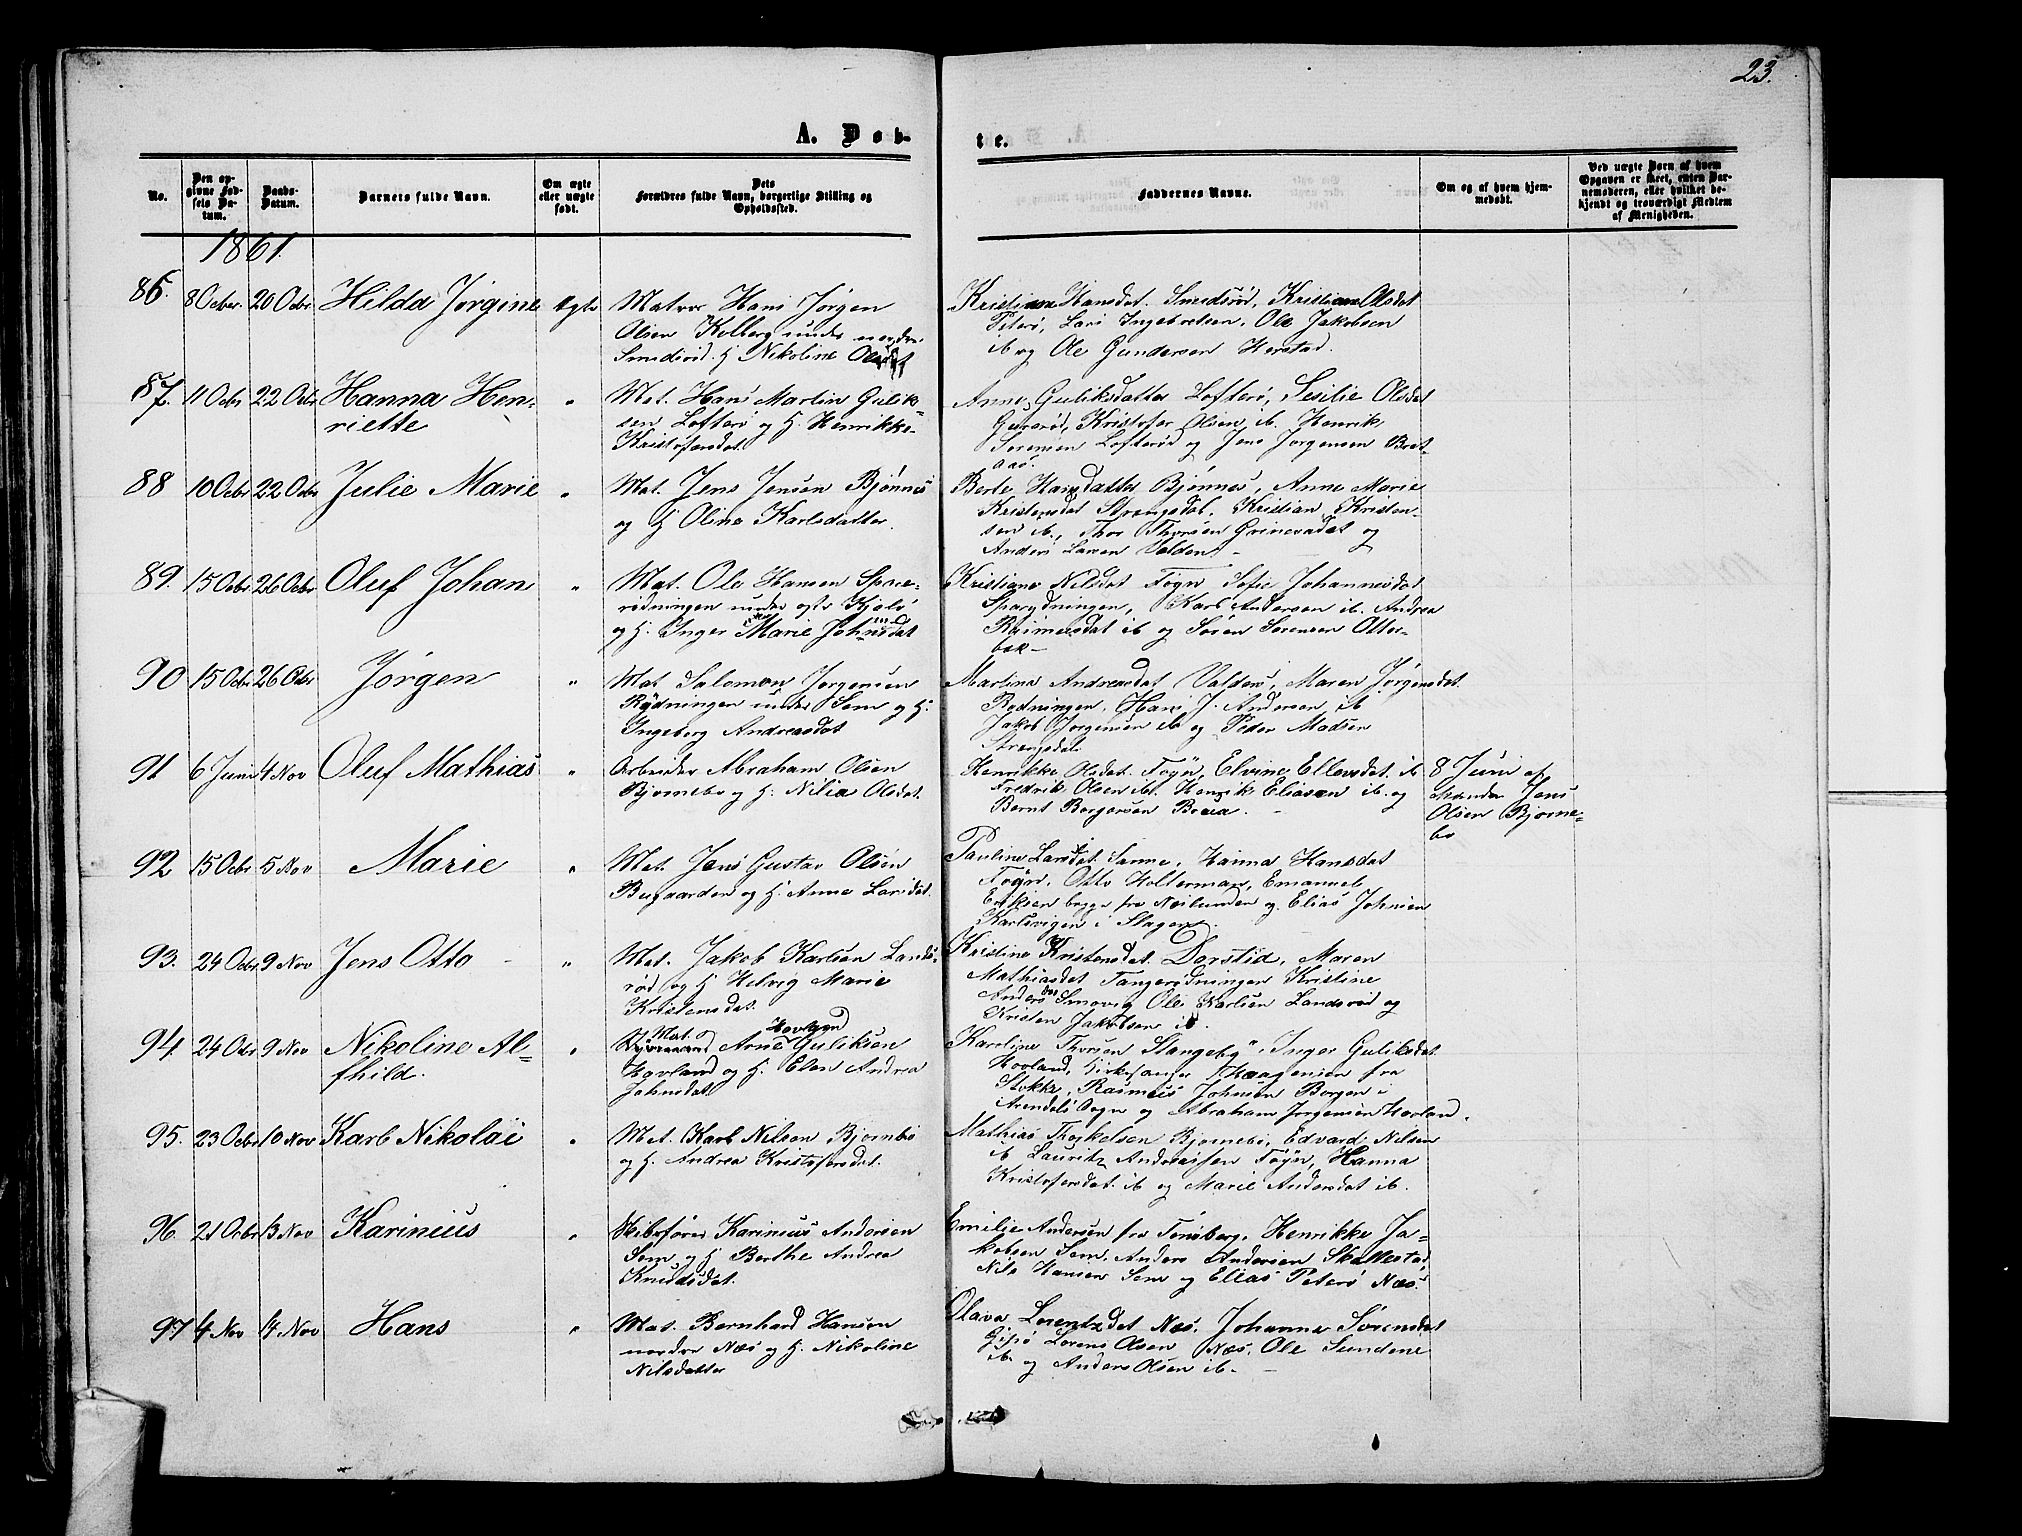 23.
A. Døb-
te.
No.
Den op-
givne Fød-
sels Da-
tum.
Daabs-
Datum.
Barnets fulde Navn.
Om ægte
eller uægte
født.
Dets
Forældres fulde Navn, borgerlige Stilling og
Opholdssted.
Faddernes Navne.
Om og af hvem hjem-
medøbt.
Ved uægte Barn af hvem
Opgaven er skeet, enten Bar-
nemoderen, eller hvilket be-
kjendt og troværdigt Medlem
af Menigheden.
1861.
86. 8 Octbr. 20 Octbr Hilda Jørgine Ægte
Matros Hans Jørgen
Olsen Kolberg under nordre
Smidsrød. H Nikoline Olsdat
Kristiane Hansdat. Smidsrød, Kristiane Olsdat
Peterø, Lars Ingebretsen, Ole Jakobsen
ib og Ole Gundersen Herstad.
87. 11 Octbr 22 Octbr Hanna Hen-
riette "
Mat. Hans Martin Gulik-
sen Lofterø og H. Henrikke
Kristofersdat
Anne Guliksdatter Lofterø, Sesilie Olsdat
Kristofer Olsen ib. Henrik
Sørensen Lofterød og Jens Jørgensen Bret-
aas.
88 10 Octbr 22 Octbr Julie Marie "
Mat. Jens Jensen Bjønnes
og H Oline Karlsdatter.
Berte Hansdatter Bjønnes, Anne Marie
Kristensdat Strengsdal, Kristian Kristen-
sen ib., Thor Thorsen og
Anders Larsen Valden. -
89. 15 Octbr 26 Octbr Oluf Johan "
Mat. Ole Hansen Spar-
rødningen under Kjølø
og H. Inger Marie Johnsdat
Kristiane Nilsdat Føyn Sofie Johannesdat
Sparrydningen, Karl Andersen ib. Andrea
Rasmusdat ib og Søren Sørensen Otter-
bæk -
90 15 Octbr 26 Octbr Jørgen "
Mat Salomon Jørgensen
Rydningen under Sem og H.
Ingeborg Andreasdat
Martina Andreasdat Valderø, Maren Jørgensdat.
Rydningen, Hans J. Andersen ib
Jakob Jørgensen ib og Peder Madsen
Strengsdal
91 6 Juni 4 Nov Oluf Mathias "
Arbeider Abraham Olsen
Bjørnebo og H. Nilia Olsdat.
Henrikke Olsdat. Føyn, Elvine Ellevsdat. ib
Fredrik Olsen ib. Henrik Eliasen ib. og
Bernt Borgersen -
8 Juni af
Jens
Olsen Bjørne-
bo
92 15 Octbr 5 Nov Marie "
Mat. Jens Gustav Olsen
Bugaarden og H. Anne Larsdat.
Pauline Larsdat. Hanna Hansdat
Føyn, Otto Holterman, Emanuel
Eriksen begge fra og Elias Johnsen
Karlsvigen i Slagen.
93. 24 Octbr 9 Nov Jens Otto - "
Mat. Jakob Karlsen Lands-
rød og H Helvig Marie
Kristensdat.
Kristine Kristensdat. Maren
Mathiasdat Tangerødningen Kristine
Andersdat Smovig Ole Karlsen Landsrød og
Kristen Jakobsen ib.
94 24 Octbr 9 Nov Nikoline Al-
fhild. "
Mat.
Arne Guliksen
Hovland og H. Elen Andrea
Johnsdat
Karoline Thorsen Slangeby, Inger Guliksdat.
Hovland, Kirkesanger Haagensen fra
Stokke, Rasmus Johnsen Borgen i
Arendals Sogn og Abraham Jørgensen Hovland.
95. 23 Octbr 10 Nov Karl Nikolai "
Mat. Karl Nilsen Bjørnebo
og H. Andrea Kristofersdat.
Mathias Thorkelsen Bjørnebo, Edvard Nilsen
ib Lauritz Andreassen Føyn, Hanna
Kristofersdat. ib og Marie Andersdat ib.
96. 21 Octbr 13 Nov Karinius "
Skibsfører Karinius Andersen
Sem og H Berthe Andrea
Knudsdat.
Emilie Andersen fra Tønsberg, Henrikke Ja-
kobsen Sem, Anders Andersen Skallestad
Nils Hansen Sem og Elias Peterø Næs.
97 4 Nov 14 Nov Hans "
Mat. Bernhard Hansen
nordre Næs og H. Nikoline
Nilsdatter
Olava Lorentzdat Næs. Johanne Sørensdat
Gipø Lorens Olsen Næs. Ole Sundene
ib. og Anders Olsen ib. -